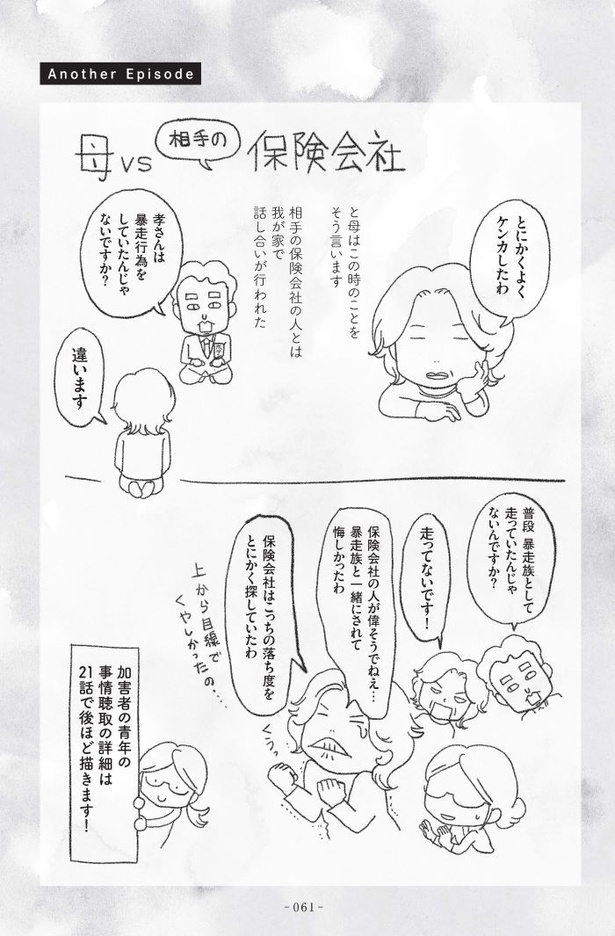 Another Episode
母vs相手の保険会社
とにかくよく
ケンカしたわ
と母はこの時のことを
そう言います
相手の保険会社の人とは
我が家で
話し合いが行われた
孝さんは
暴走行為を
していたんじゃ
ないですか？
違います
普段 暴走族として
走っていたんじゃ
ないんですか？
走ってないです！
保険会社の人が偉そうでねえ…
暴走族と一緒にされて
悔しかったわ
保険会社はこっちの落ち度を
とにかく探していたわ
くうっ
上から目線で
くやしかったの…
加害者の青年の
事情聴取の詳細は
21話で後ほど描きます！
-061-